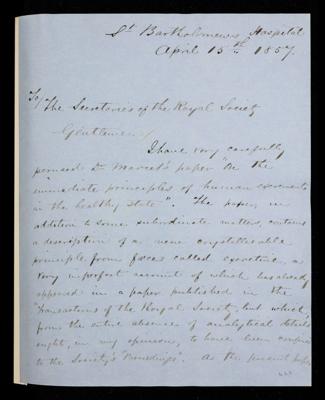 St Bartholomew's Hospital
April 15th 1857.
To/ The Secretaries of the Royal Society
Gentlemen/
I have very carefully
perused Dr Marcet's paper "On the
immediate principles of human excrements
in the healthy state". The paper, in
addition to some subordinate matters, contains
a description of a new crystallisable
principle from fæces called excretine, a
very imperfect account of which has already
appeared in a paper published in the
"Transactions of the Royal Society, but which,
from the entire absence of analytical details
ought, in my opinion, to have been confined
to the Society's "Proceedings". As the present paper